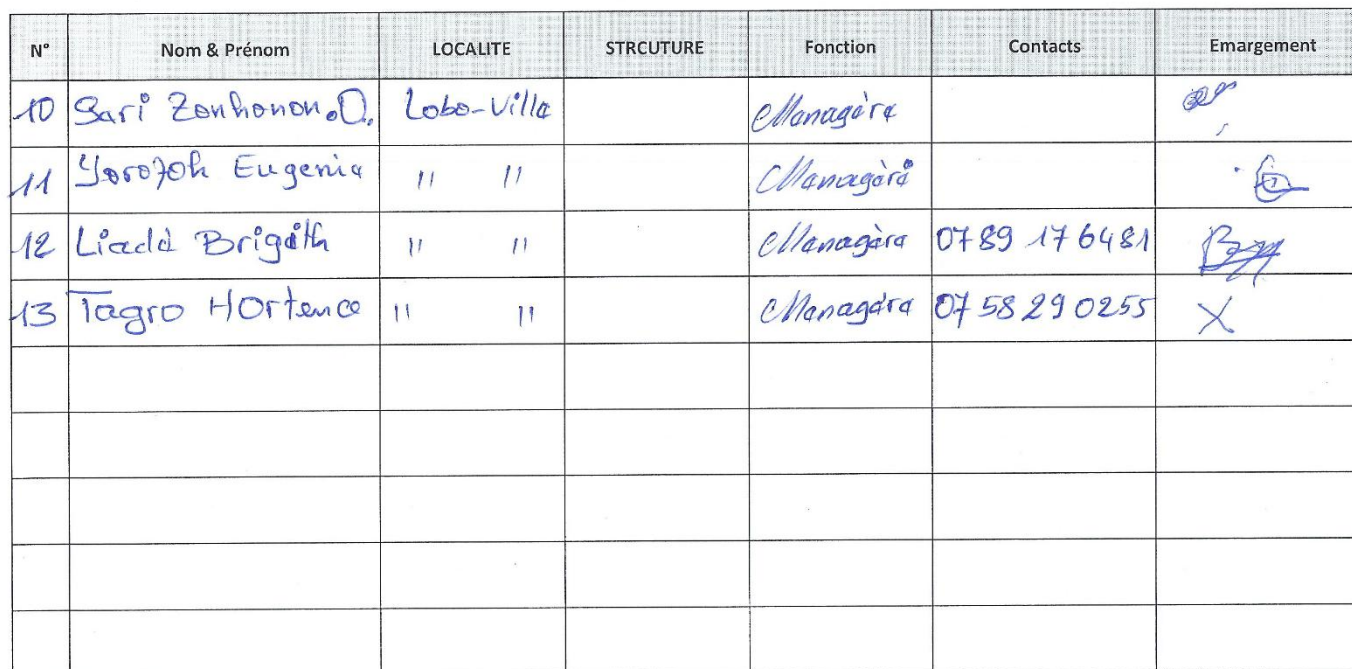 N° Nom & Prénom LOCALITE STRCUTURE Fonction Contacts Emargement
10 Sari Zonhonon.O. Lobo-Ville Managère
11 Eugenie " " Managère
12 Brigith " " Managère 0789 17 6481
13 Tagro HOrtence " " Managère 07 58 29 0255 X